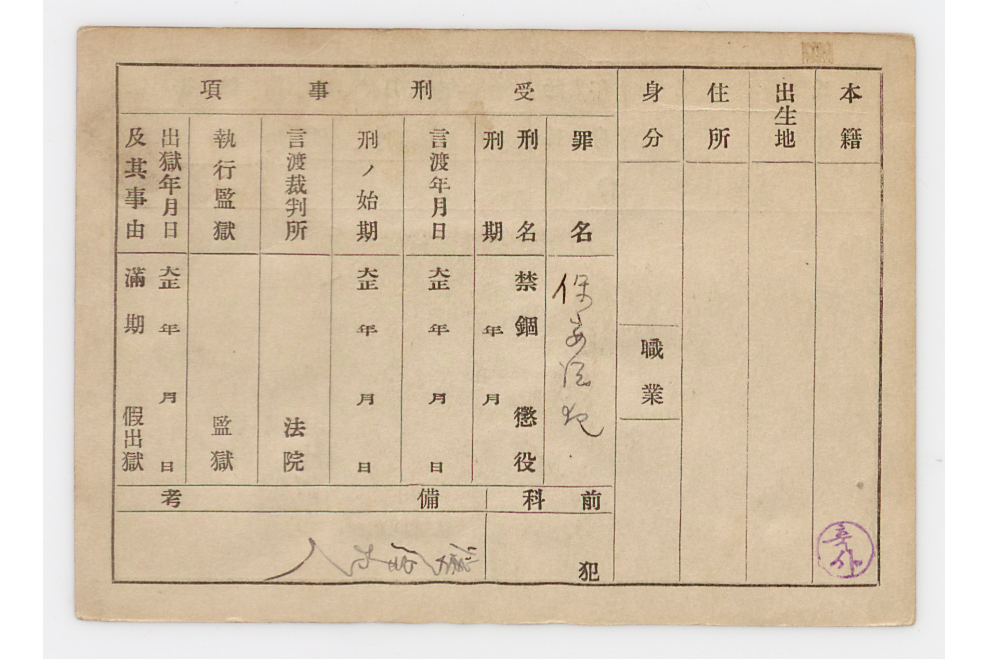 本籍
出生地
住所
身分
職業
受刑事項
罪名
保安法犯
刑名 禁錮 懲役
刑期 年 月
言渡年月日 大正 年 月 日
刑ノ始期 大正 年 月 日
言渡裁判所 法院
執行監獄 監獄
出獄年月日 大正 年 月 日
及其事由 滿期 假出獄
前科
犯
備考